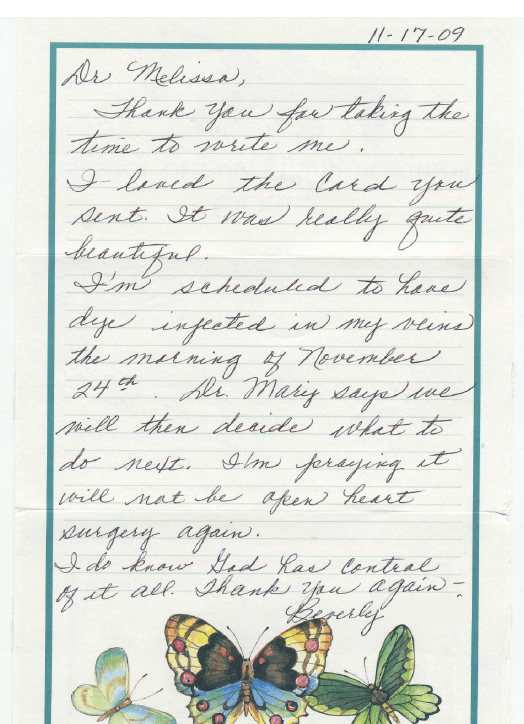 11-17-09
Dr Melissa,
Thank you for taking the
time to write me.
I loved the Card you
sent. It was really quite
beautiful.
I'm scheduled to have
dye injected in my veins
the morning of November
24th. Dr. Mariz says we
will then decide what to
do next. I'm praying it
will not be open heart
surgery again.
I do know God has control
of it all. Thank you again-
Beverly